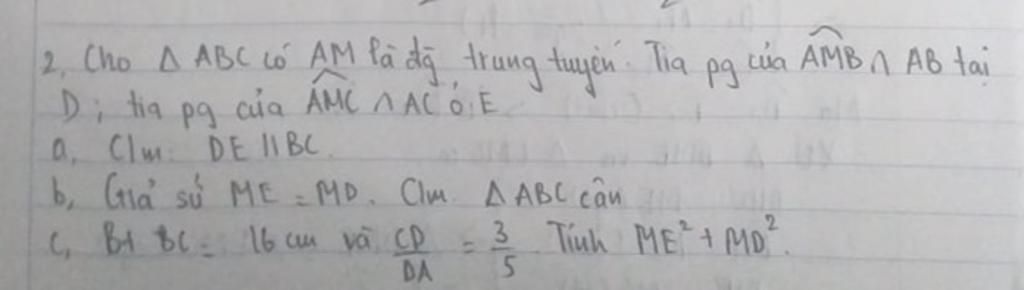 2, Cho Δ ABC có AM là đg trung tuyến. Tia pg của \widehat{AMB} ∩ AB tại
D; tia pg của \widehat{AMC} ∩ AC ở E
a, C/m: DE // BC.
b, Giả sử ME = MD. C/m Δ ABC cân
c, Bt BC = 16 cm và \frac{CD}{DA} = \frac{3}{5} Tính ME² + MD².